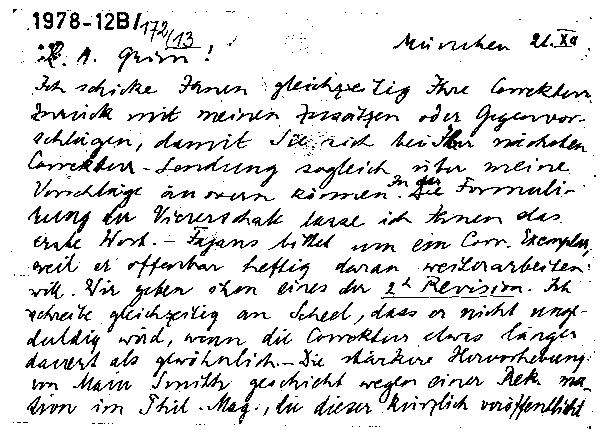 1978-12B/172/13
L. H. Grimm! München 21. XII
Ich schicke Ihnen gleichzeitig Ihre Correktur
zurück mit meinen Zusätzen oder Gegenvor-
schlägen, damit Sie sich bei Ihrer nächsten
Correktur-Sendung sogleich über meine
Vorschläge äussern können. In der Formuli-
rung der Viererschale lasse ich Ihnen das
erste Wort. - Fajans bittet um ein Corr. Exemplar,
weil er offenbar heftig daran weiterarbeiten
will. Wir geben ihm eines der 2t Revision. Ich
schreibe gleichzeitig an Scheel, dass er nicht unge-
duldig wird, wenn die Correktur etwas länger
dauert als gewöhnlich. - Die stärkere Hervorhebung
von Main Smith geschieht wegen einer Rek. ma-
tion im Phil. Mag., die dieser kürzlich veröffentlicht